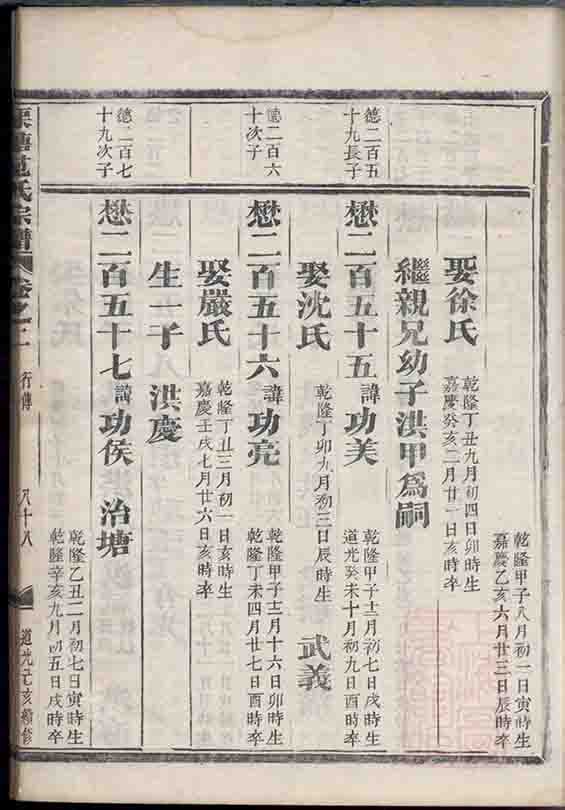 乾隆甲子八月初一日寅時生
嘉慶乙亥六月廿三日辰時卒
娶徐氏
乾隆丁丑九月初四日卯時生
嘉慶癸亥二月廿一日亥時卒
繼親兄幼子洪甲為嗣
德二百五
十九長子
懋二百五十五 諱功美
乾隆甲子十二月初七日戌時生
道光癸未十月初九日酉時卒
娶沈氏
乾隆丁卯九月初三日辰時生
武義
德二百六
十次子
懋二百五十六 諱功亮
乾隆甲子十二月十六日卯時生
乾隆丁未四月廿七日酉時卒
娶嚴氏
乾隆丁丑三月初一日亥時生
嘉慶壬戌七月廿六日亥時卒
生一子 洪慶
德二百七
十九次子
懋二百五十七 諱功侯 治塘
乾隆乙丑二月初七日寅時生
乾隆辛亥九月初五日戌時卒
氏宗譜 卷之二 行傳 八十八 道光己亥續修